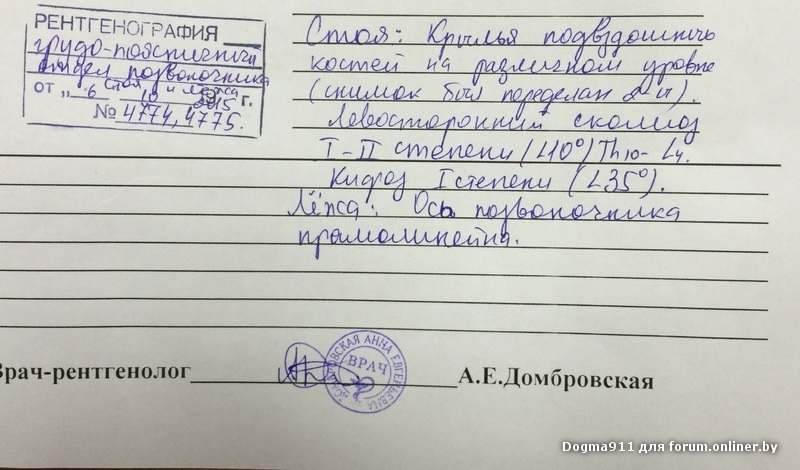 РЕНТГЕНОГРАФИЯ
грудо-поясничный
отдел позвоночника
стоя и лёжа
от „ 6 10 2015 г.
№ 4774, 4775.
Стоя: Крылья подвздошных
костей на различном уровне
(снимок был переделан 2 ...).
Левосторонний сколиоз
I-II степени (∠10°) Th10- L4.
Кифоз I степени (∠35°).
Лёжа: Ось позвоночника
прямолинейна.
Врач-рентгенолог
ДОМБРОВСКАЯ АННА ЕВГЕНЬЕВНА
ВРАЧ
А.Е.Домбровская
Dogma911 для forum.onliner.by